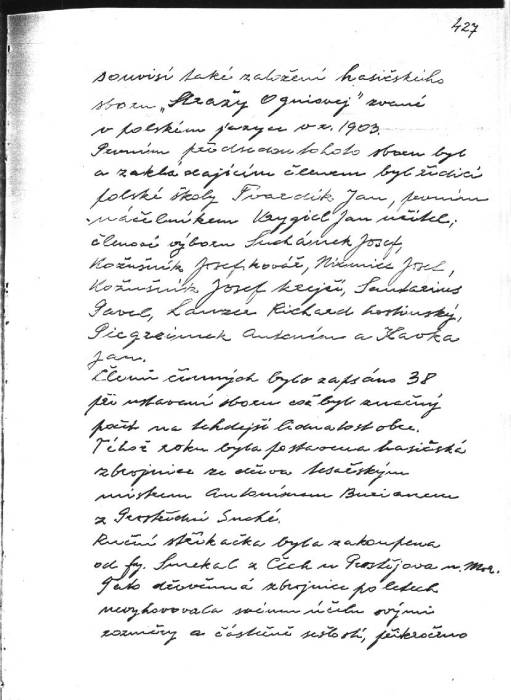 427
souvisí také založení hasičského
sboru „Straży Ogniowej" zvané
v polském jazyce v r. 1903.
Prvním předsedou tohoto sboru byl
a zakládajícím členem byl řídící
polské školy Tvardík Jan, prvním
náčelníkem Krygiel Jan učitel,
členové výboru Suchánek Josef,
Kožušník Josef kovář, Josef,
Kožušník Josef krejčí, Santarius
Pavel, Richard hostinský,
Antonín a Havka
Jan.
Členů činných bylo zapsáno 38
při ustavení sboru což byl značný
počet na tehdejší lidnatost obce.
Téhož roku byla postavena hasičská
zbrojnice ze dřeva tesařským
mistrem Antonínem Burianem
z Prostřední Suché.
Ruční stříkačka byla zakoupena
od fy. Smekal z Čech u Prostějova n. Mor.
Tato dřevěná zbrojnice po letech
nevyhovovala svému účelu svými
rozměry a částečně sešlostí, přikročeno